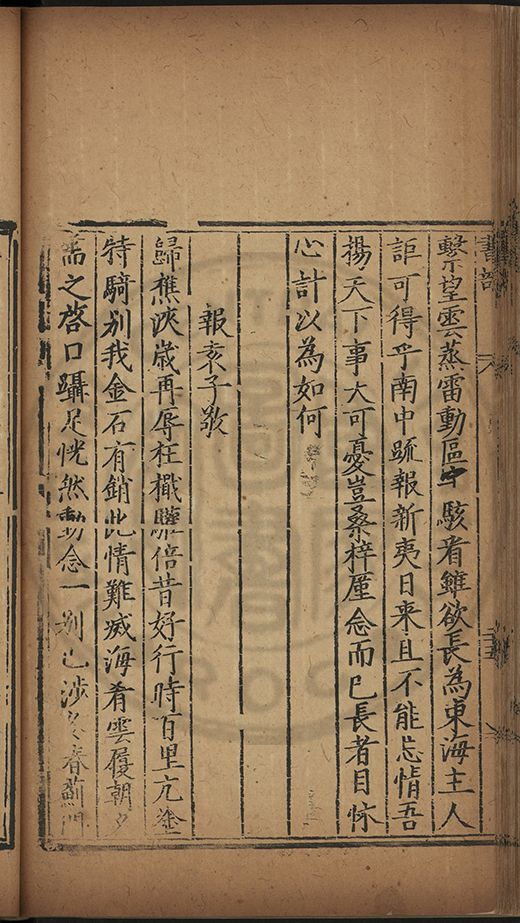 繫望雲蒸雷動區宇駭看雖欲長為東海主人
詎可得乎南中䟽報新夷日来且不能忘情吾
揚天下事大可憂豈桑梓厪念而已長者目怵
心計以為如何
報袁子敬
歸樵浹歲再辱枉檝驩倍昔好行時百里亢塗
特騎别我金石有銷此情難烕海肴雲履朝夕
需之啓口躡足恍然動念一别已涉春薊門